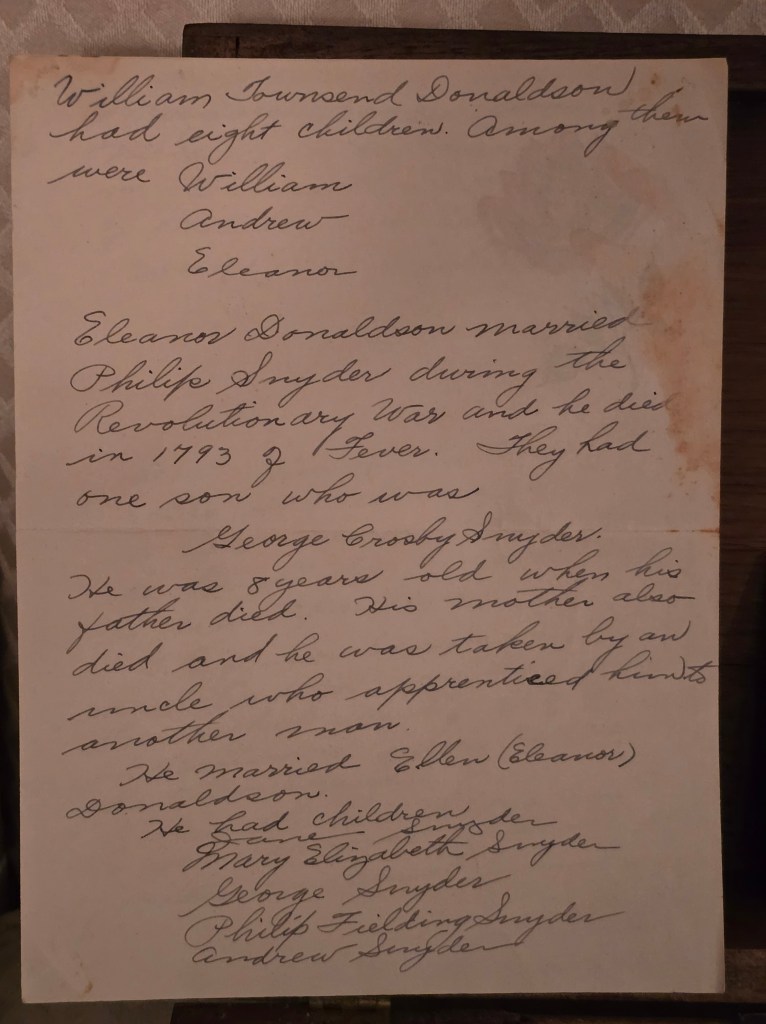 William Townsend Donaldson
had eight children. Among them
were William
Andrew
Eleanor
Eleanor Donaldson married
Philip Snyder during the
Revolutionary War and he died
in 1793 of Fever. They had
one son who was
George Crosby Snyder.
He was 8 years old when his
father died. His mother also
died and he was taken by an
uncle who apprenticed him to
another man.
He married Ellen (Eleanor)
Donaldson.
He had children
Jane Snyder
Mary Elizabeth Snyder
George Snyder
Philip Fielding Snyder
Andrew Snyder